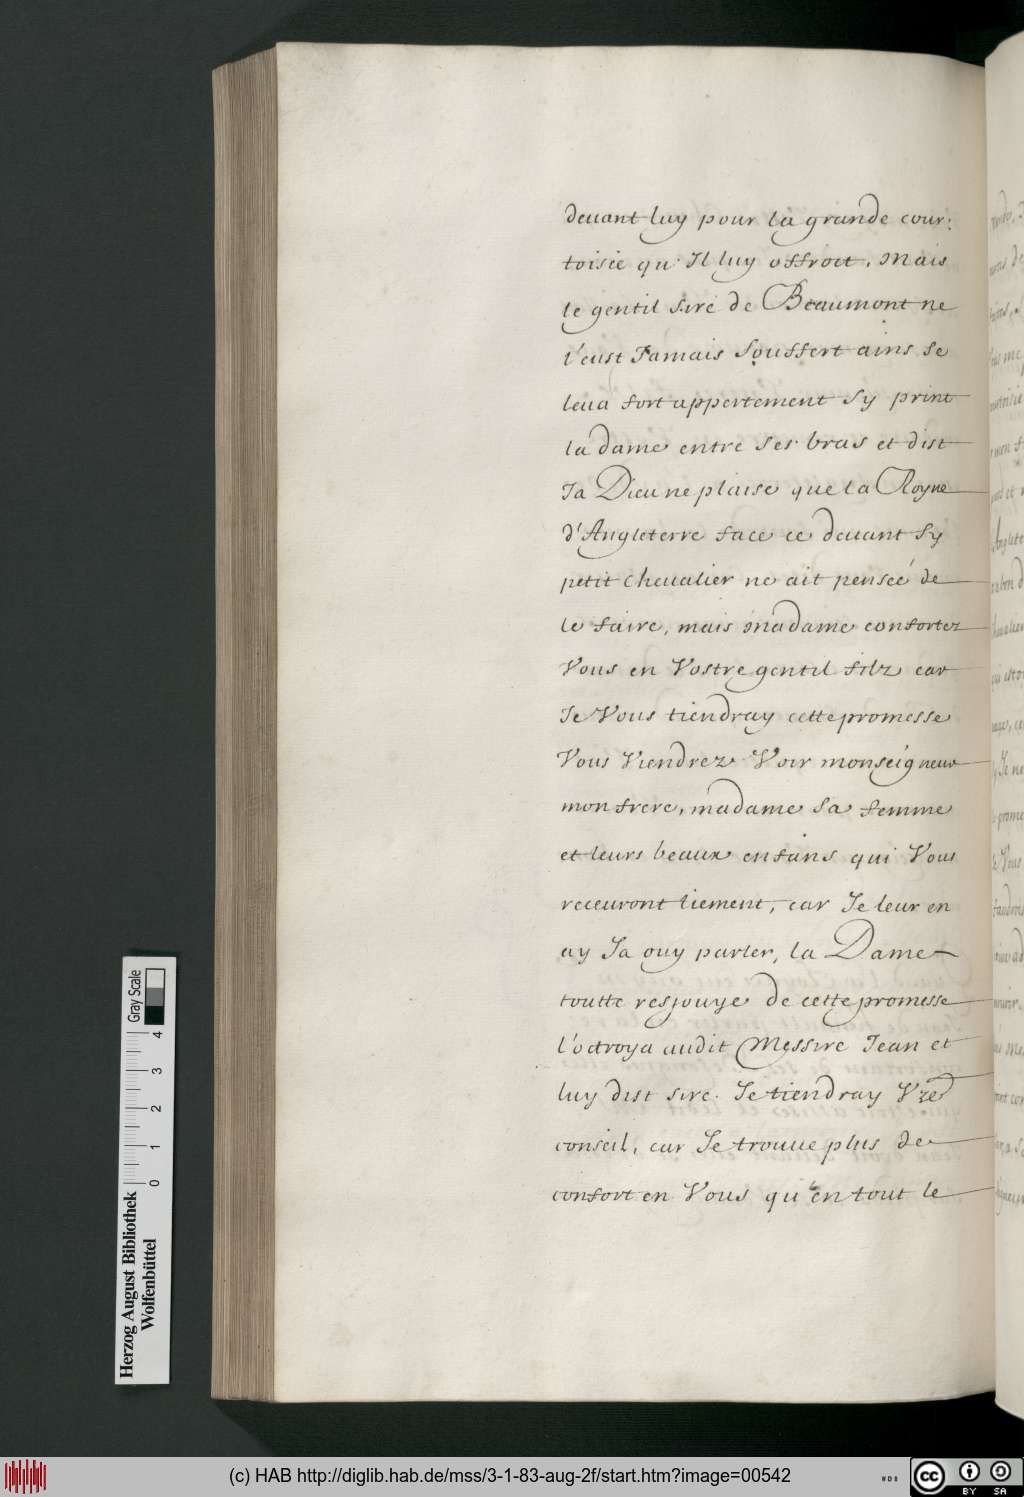 deuant luy pour la grande cour:
toisie qu'Il luy offroit. Mais
le gentil sire de Beaumont ne
l'eust Jamais souffert ains se
leua fort appertement sy print
la dame entre ses bras et dist
Ja Dieu ne plaise que la Royne
d'Angleterre face ce deuant sy
petit chevalier ne ait penseé de
le faire, mais madame confortez
Vous en Vostre gentil filz car
Je Vous tiendray cette promesse
Vous Viendrez Voir monseigneur
mon frere, madame sa femme
et leurs beaux enfans qui Vous
receuront liement, car Je leur en
ay Ja ouy parler, la Dame
toutte resjouye de cette promesse
l'octroya audit Messire Jean et
luy dist sire. Je tiendray Vre
conseil, car Je trouue plus de
confort en Vous qu'en tout le
Herzog August Bibliothek
Wolfenbüttel
0 1 2 3 4
Gray Scale
(c) HAB http://diglib.hab.de/mss/3-1-83-aug-2f/start.htm?image=00542
WDB
cc BY SA